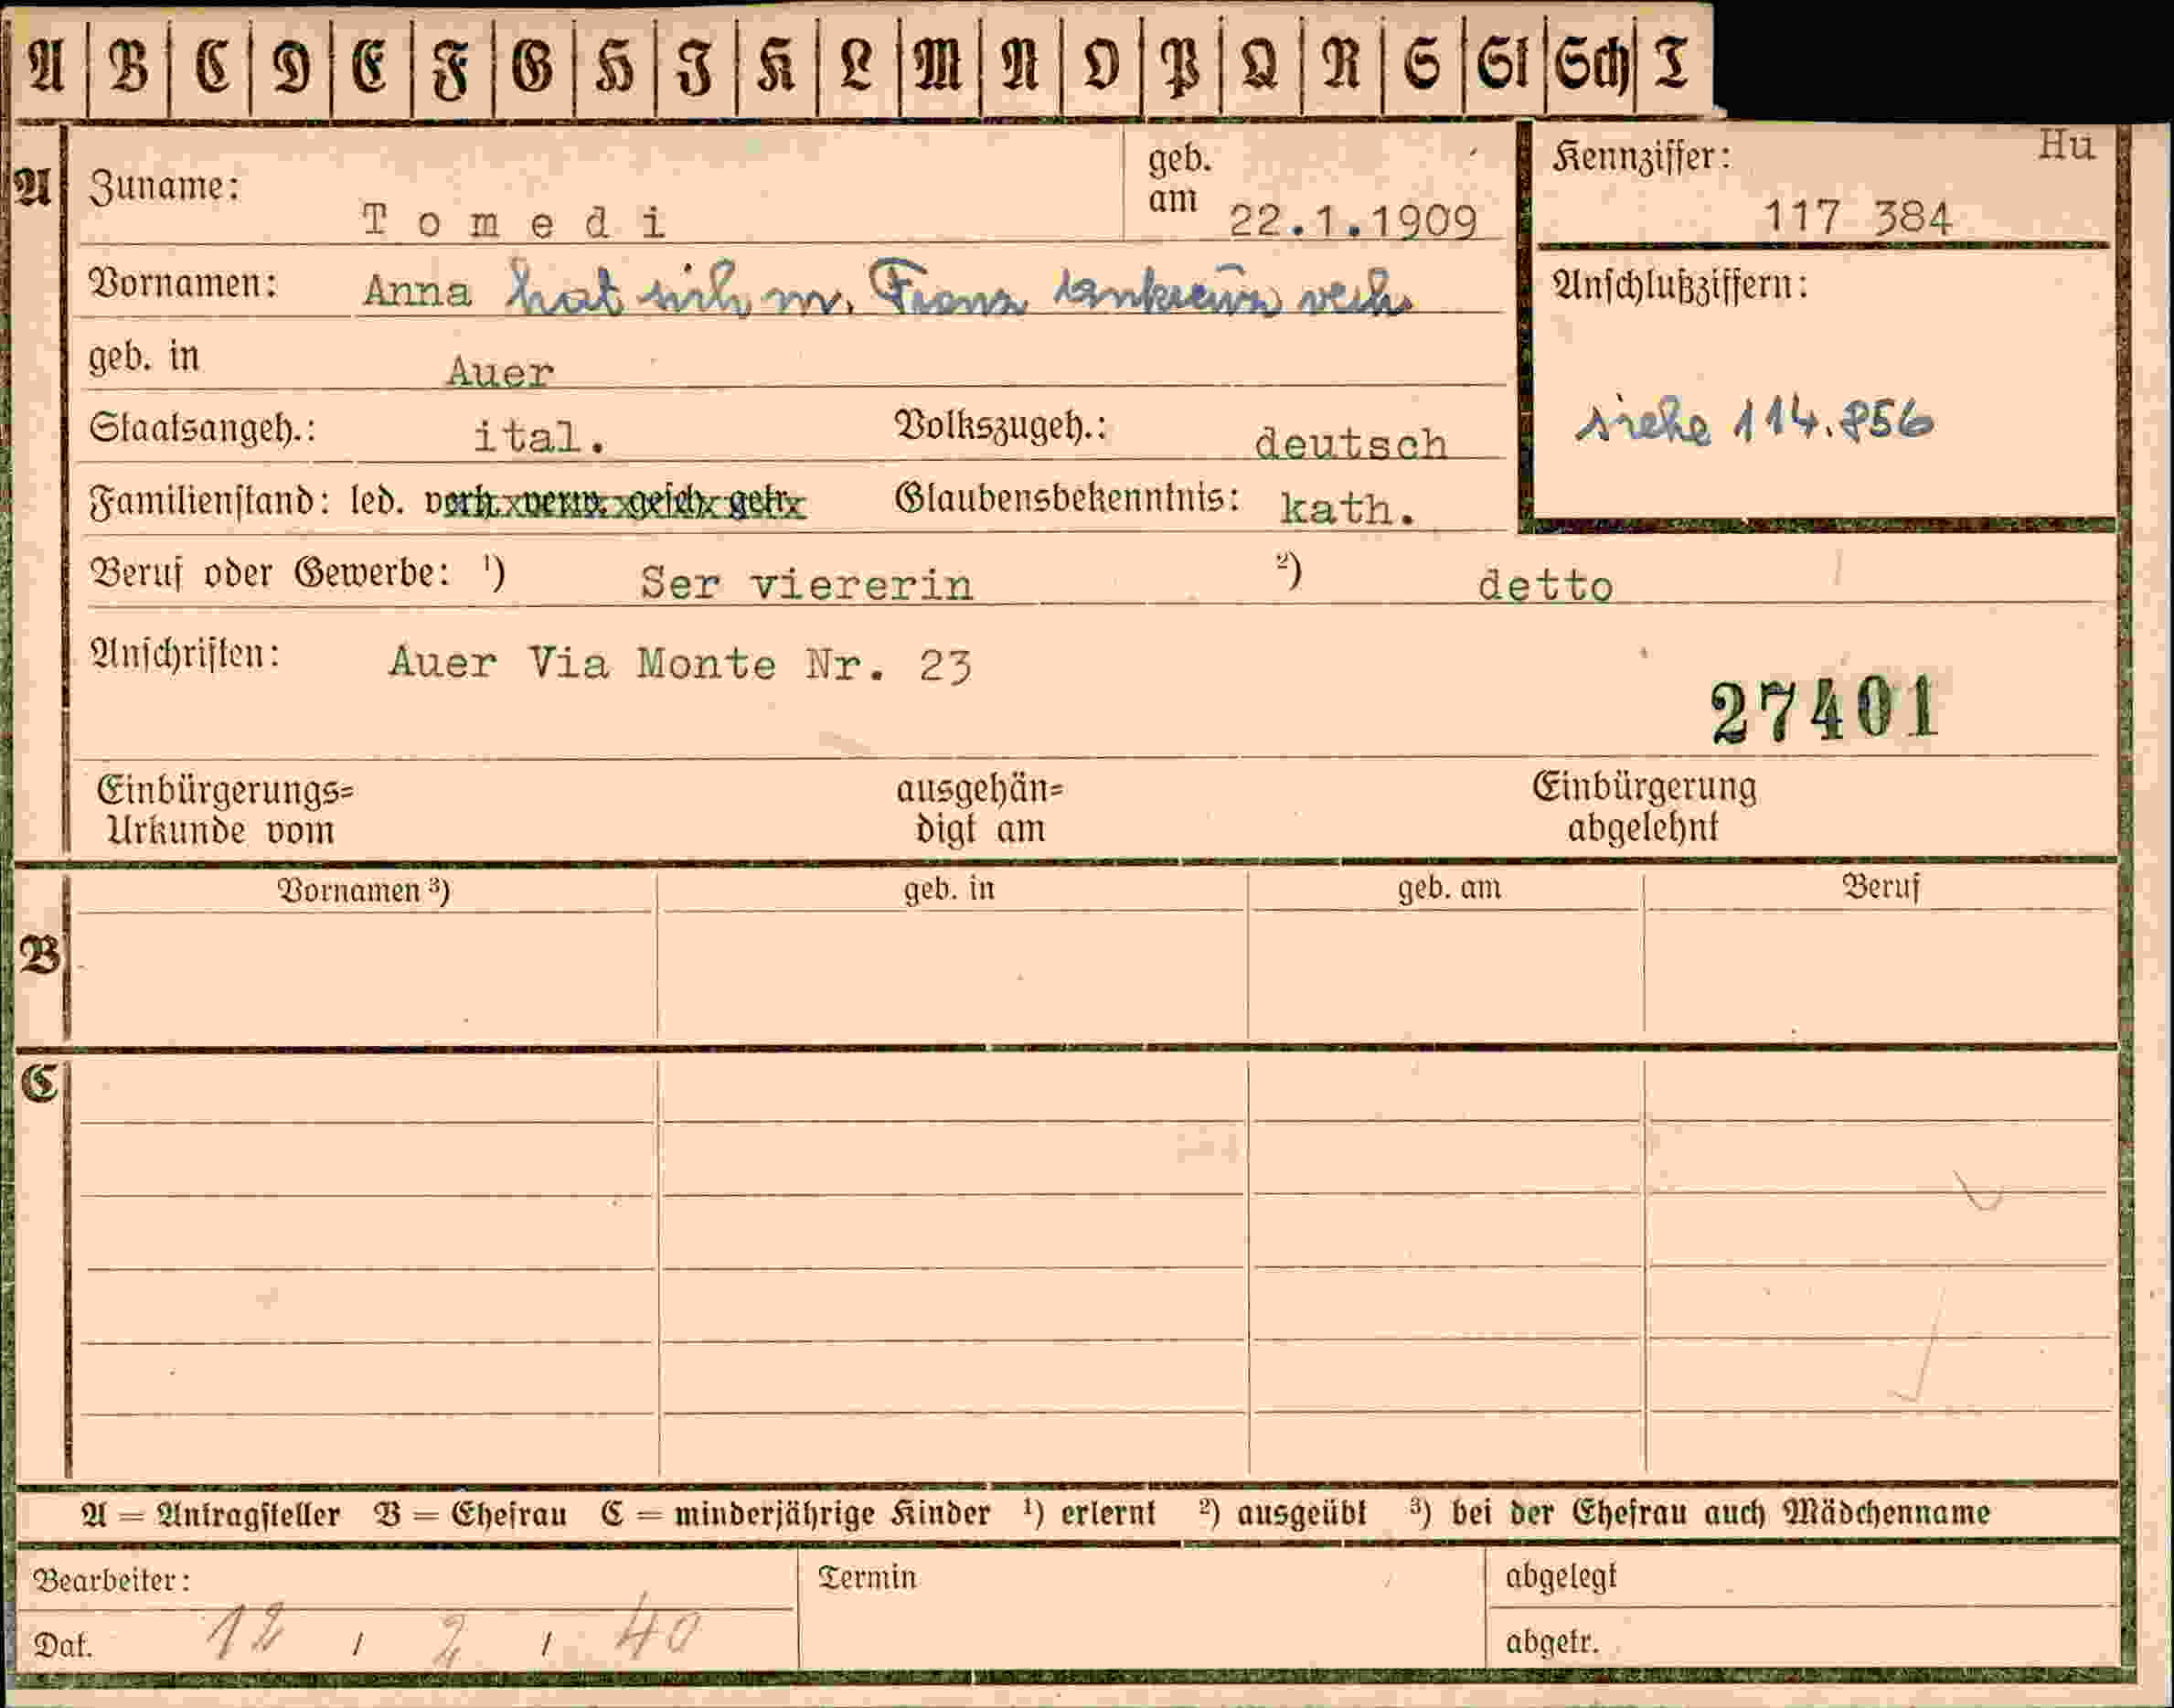 A B C D E F G H I K L M N O P Q R S St Sch T
A
Zuname: Tomedi
geb. am 22.1.1909
Kennziffer: Hu
117 384
Vornamen: Anna hat sich m. Franz verh.
Anschlußziffern:
siehe 114.856
geb. in Auer
Staatsangeh.: ital. Volkszugeh.: deutsch
Familienstand: led. verh. verw. gesch. getr. Glaubensbekenntnis: kath.
Beruf oder Gewerbe: ¹) Ser viererin ²) detto
Anschriften: Auer Via Monte Nr. 23
27401
Einbürgerungs=
Urkunde vom
ausgehän=
digt am
Einbürgerung
abgelehnt
B
Vornamen ³) geb. in geb. am Beruf
C
A = Antragsteller B = Ehefrau C = minderjährige Kinder ¹) erlernt ²) ausgeübt ³) bei der Ehefrau auch Mädchenname
Bearbeiter: Termin abgelegt
Dat. 12 / 2 / 40 abgetr.